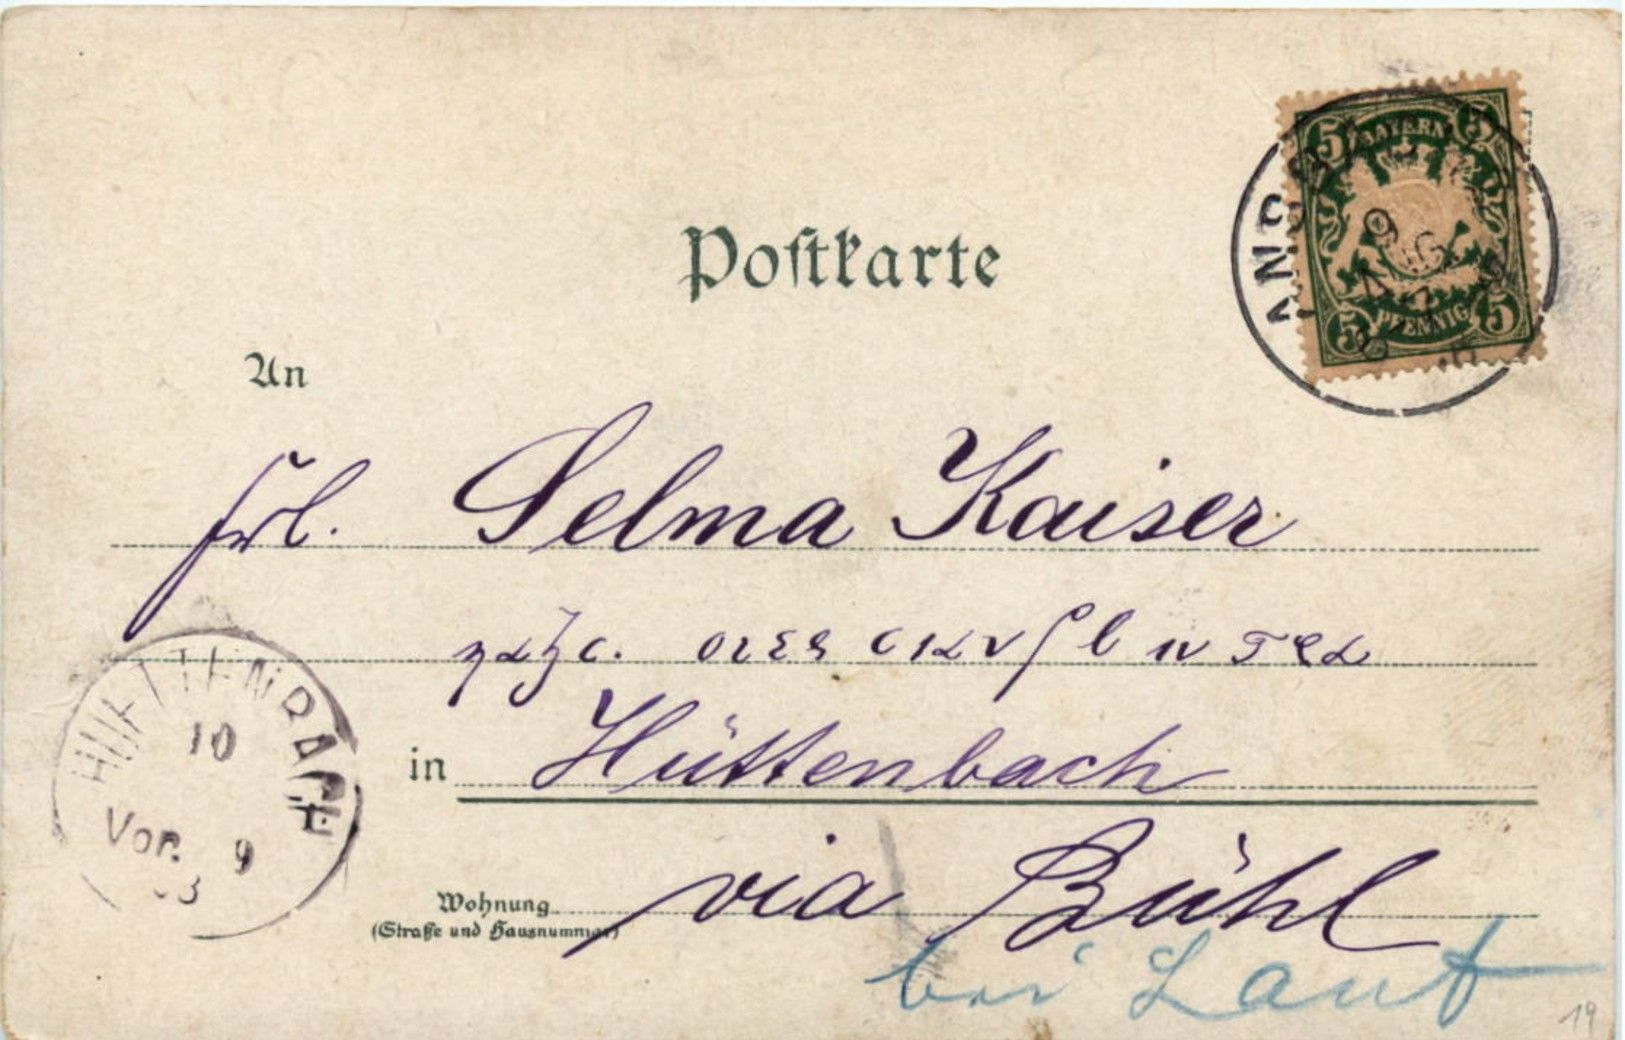 5 BAYERN 5
5 PFENNIG 5
9
AUG
Postkarte
An
Frl. Selma Kaiser
HUETTENBACH
10
Vor. 9
in Hüttenbach
via Bühl
Wohnung
(Straße und Hausnummer)
bei Lauf
19